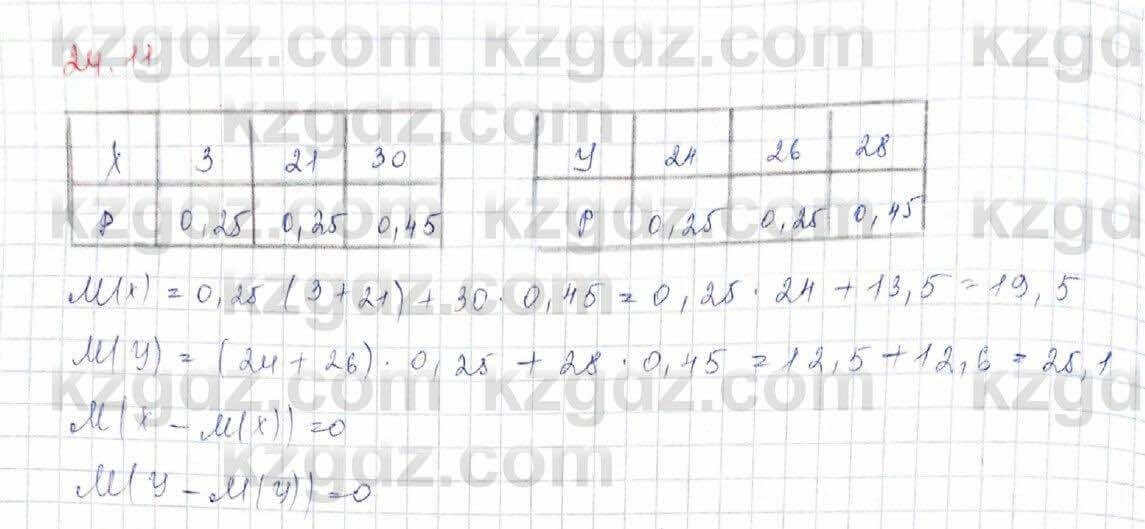 24.11
X 3 21 30
P 0,25 0,25 0,45
У 24 26 28
P 0,25 0,25 0,45
M(x) = 0,25 (3+21) + 30 · 0,45 = 0,25 · 24 + 13,5 = 19,5
M(У) = (24+26) · 0,25 + 28 · 0,45 = 12,5 + 12,6 = 25,1
M(x - M(x)) = 0
M(У - M(У)) = 0
kzgdz.com